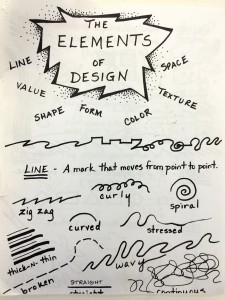 THE
ELEMENTS
OF
DESIGN
LINE
SPACE
VALUE
TEXTURE
SHAPE
FORM
COLOR
LINE - A mark that moves from point to point.
zig zag
curly
spiral
curved
stressed
thick-n-thin
wavy
broken
STRAIGHT
straight
continuous